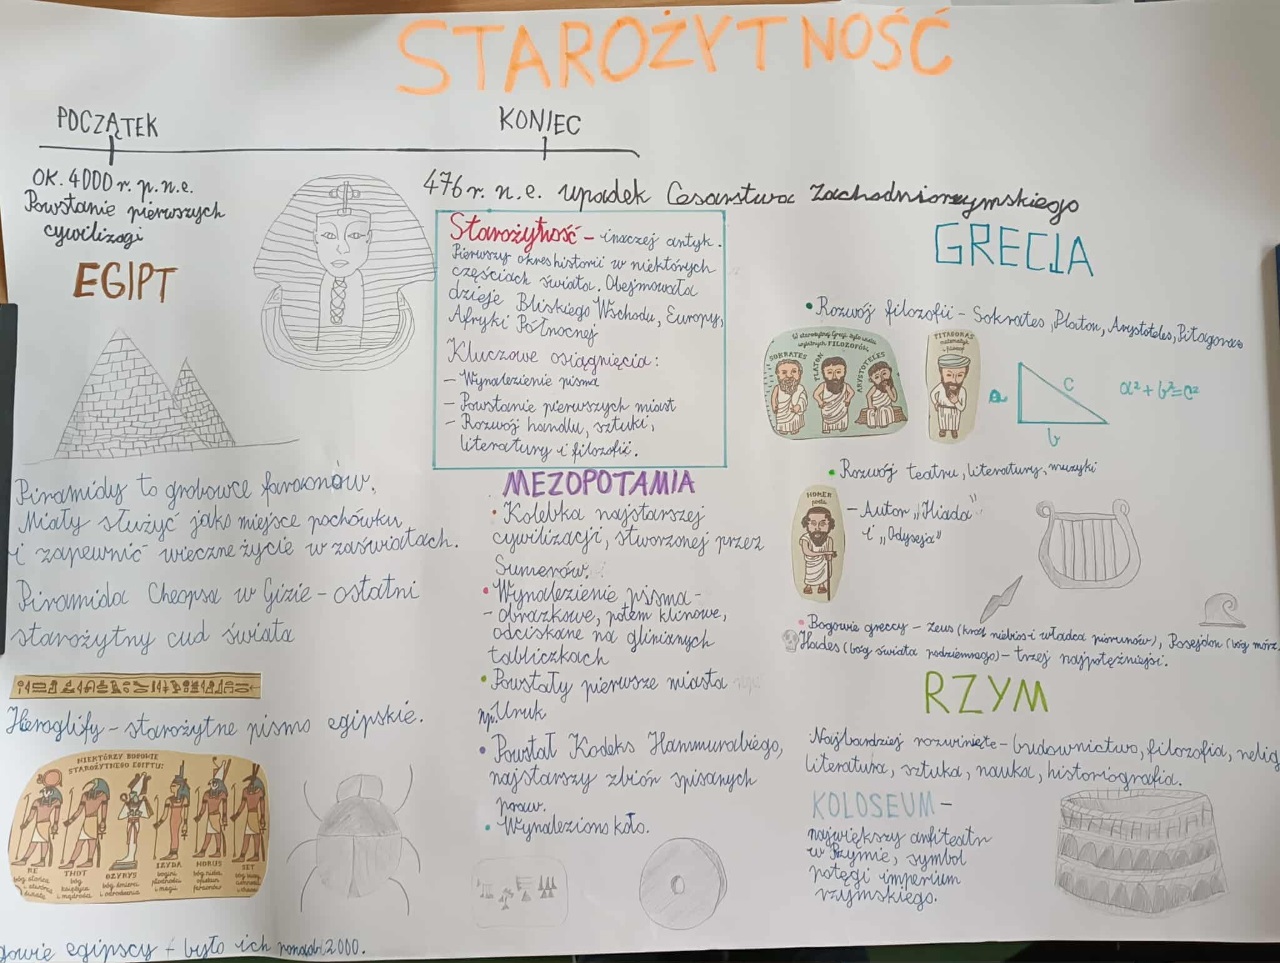 STAROŻYTNOŚĆ
POCZĄTEK
KONIEC
OK. 4000 r. p.n.e.
Powstanie pierwszych
cywilizacji
476 r. n.e. upadek Cesarstwa Zachodniorzymskiego
EGIPT
Piramidy to grobowce faraonów.
Miały służyć jako miejsce pochówku
i zapewnić wieczne życie w zaświatach.
Piramida Cheopsa w Gizie - ostatni
starożytny cud świata
Hieroglify - starożytne pismo egipskie.
NIEKTÓRZY BOGOWIE
STAROŻYTNEGO EGIPTU:
RE
bóg słońca
i stwórca
świata
THOT
bóg
księżyca
i mądrości
OZYRYS
bóg śmierci
i odrodzenia
IZYDA
bogini
płodności
i magii
HORUS
bóg nieba,
opiekun
faraonów
SET
bóg
egipscy - było ich ponad 2000.
Starożytność - inaczej antyk.
Pierwszy okres historii w niektórych
częściach świata. Obejmowała
dzieje Bliskiego Wschodu, Europy,
Afryki Północnej
Kluczowe osiągnięcia:
- Wynalezienie pisma
- Powstanie pierwszych miast
- Rozwój handlu, sztuki,
literatury i filozofii.
MEZOPOTAMIA
• Kolebka najstarszej
cywilizacji, stworzonej przez
Sumerów.
• Wynalezienie pisma -
- obrazkowe, potem klinowe,
odciskane na glinianych
tabliczkach
• Powstały pierwsze miasta
np. Uruk
• Powstał Kodeks Hammurabiego,
najstarszy zbiór spisanych
praw.
• Wynaleziono koło.
GRECJA
• Rozwój filozofii - Sokrates, Platon, Arystoteles, Pitagoras
W starożytnej Grecji żyło wielu
wybitnych FILOZOFÓW
SOKRATES
PLATON
ARYSTOTELES
PITAGORAS
matematyk
i filozof
a
c
b
a²+b²=c²
• Rozwój teatru, literatury, muzyki
HOMER
poeta
- Autor „Iliada"
i „Odyseja"
• Bogowie greccy - Zeus (król niebios i władca piorunów), Posejdon (bóg mórz
Hades (bóg świata podziemnego) - trzej najpotężniejsi.
RZYM
Najbardziej rozwinięte - budownictwo, filozofia, relig
literatura, sztuka, nauka, historiografia.
KOLOSEUM -
największy amfiteatr
w Rzymie, symbol
potęgi imperium
rzymskiego.